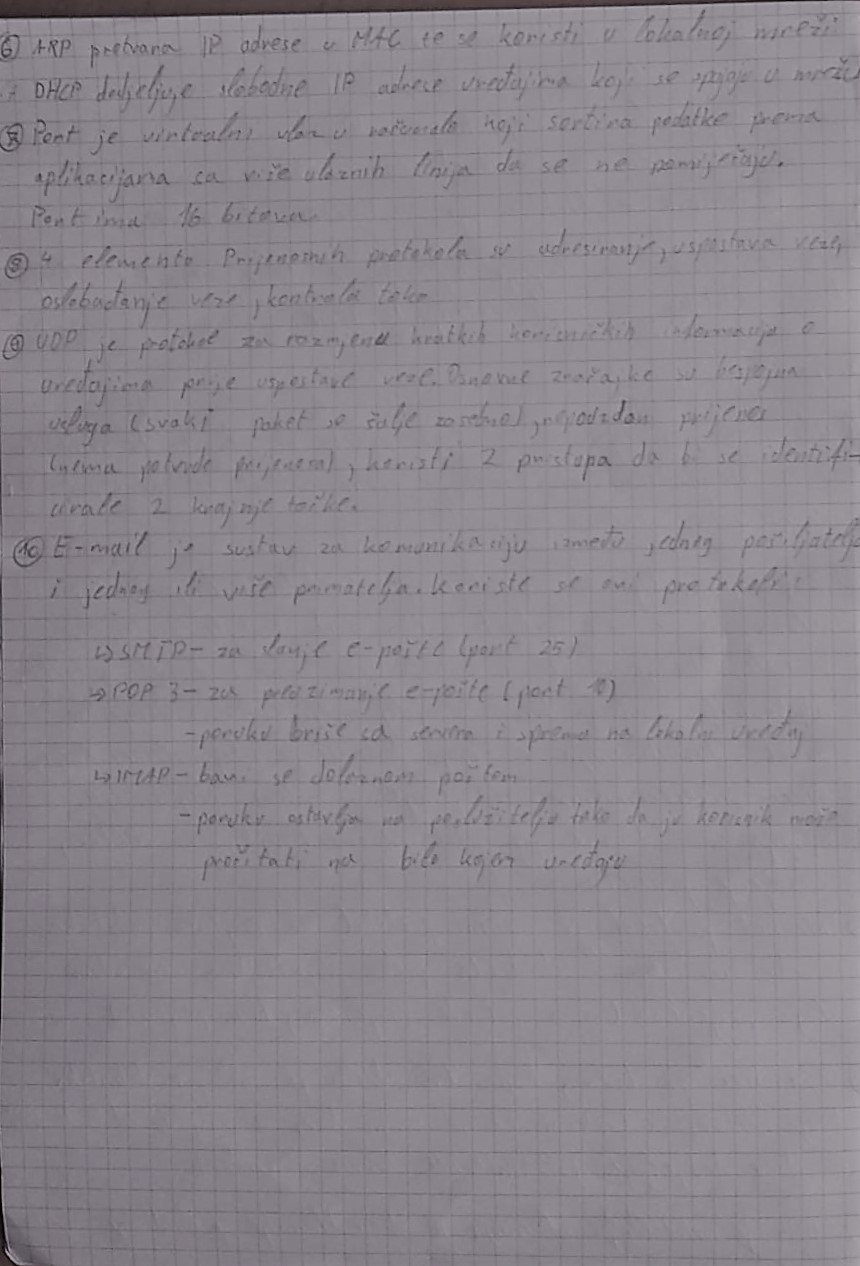 ⑥ ARP pretvara IP adrese u MAC te se koristi u lokalnoj mreži
DHCP dodjeljuje slobodne IP adrese uređajima koji se spajaju u mrežu
⑦ Port je virtualni ulaz u računalo koji sortira podatke prema
aplikacijama sa više ulaznih linija da se ne pomiješaju.
Port ima 16 bitova.
⑧ 4 elementa Prijenosnih protokola su adresiranje, uspostava veze,
oslobađanje veze, kontrola toka
⑨ UDP je protokol za razmjenu kratkih korisničkih informacija o
uređajima prije uspostave veze. Osnovne značajke su bespojna
usluga (svaki paket se šalje zasebno), nepouzdan prijenos
(nema potvrde prijenosa), koristi 2 pristupa da bi se identifi-
cirale 2 krajnje točke.
⑩ E-mail je sustav za komunikaciju između jednog pošiljatelja
i jednog ili više primatelja. Koriste se ovi protokoli:
↳ SMTP - za slanje e-pošte (port 25)
↳ POP 3 - za preuzimanje e-pošte (port
- poruku briše sa servera i sprema na lokalni uređaj
↳ IMAP - bavi se dolaznom poštom
- poruku ostavlja na poslužitelju tako da ju korisnik može
pročitati na bilo kojem uređaju